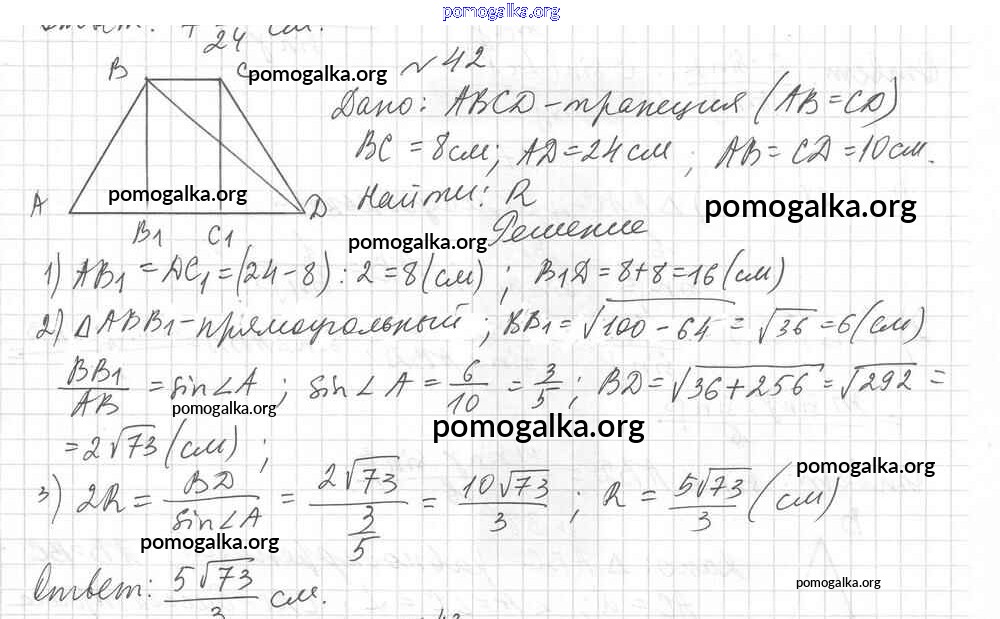 pomogalka.org
24 см.
B C pomogalka.org № 42
Дано: ABCD - трапеция (AB = CD)
BC = 8 см; AD = 24 см ; AB = CD = 10 см.
A pomogalka.org D Найти: R pomogalka.org
B1 C1 pomogalka.org Решение
1) AB1 = DC1 = (24 - 8) : 2 = 8 (см) ; B1D = 8 + 8 = 16 (см)
2) △ABB1 - прямоугольный ; BB1 = √100 - 64 = √36 = 6 (см)
BB1/AB = sin∠A ; sin∠A = 6/10 = 3/5 ; BD = √36 + 256 = √292 =
pomogalka.org
pomogalka.org
= 2√73 (см) ;
pomogalka.org
3) 2R = BD/sin∠A = 2√73/3/5 = 10√73/3 ; R = 5√73/3 (см)
pomogalka.org
Ответ: 5√73/3 см.
pomogalka.org